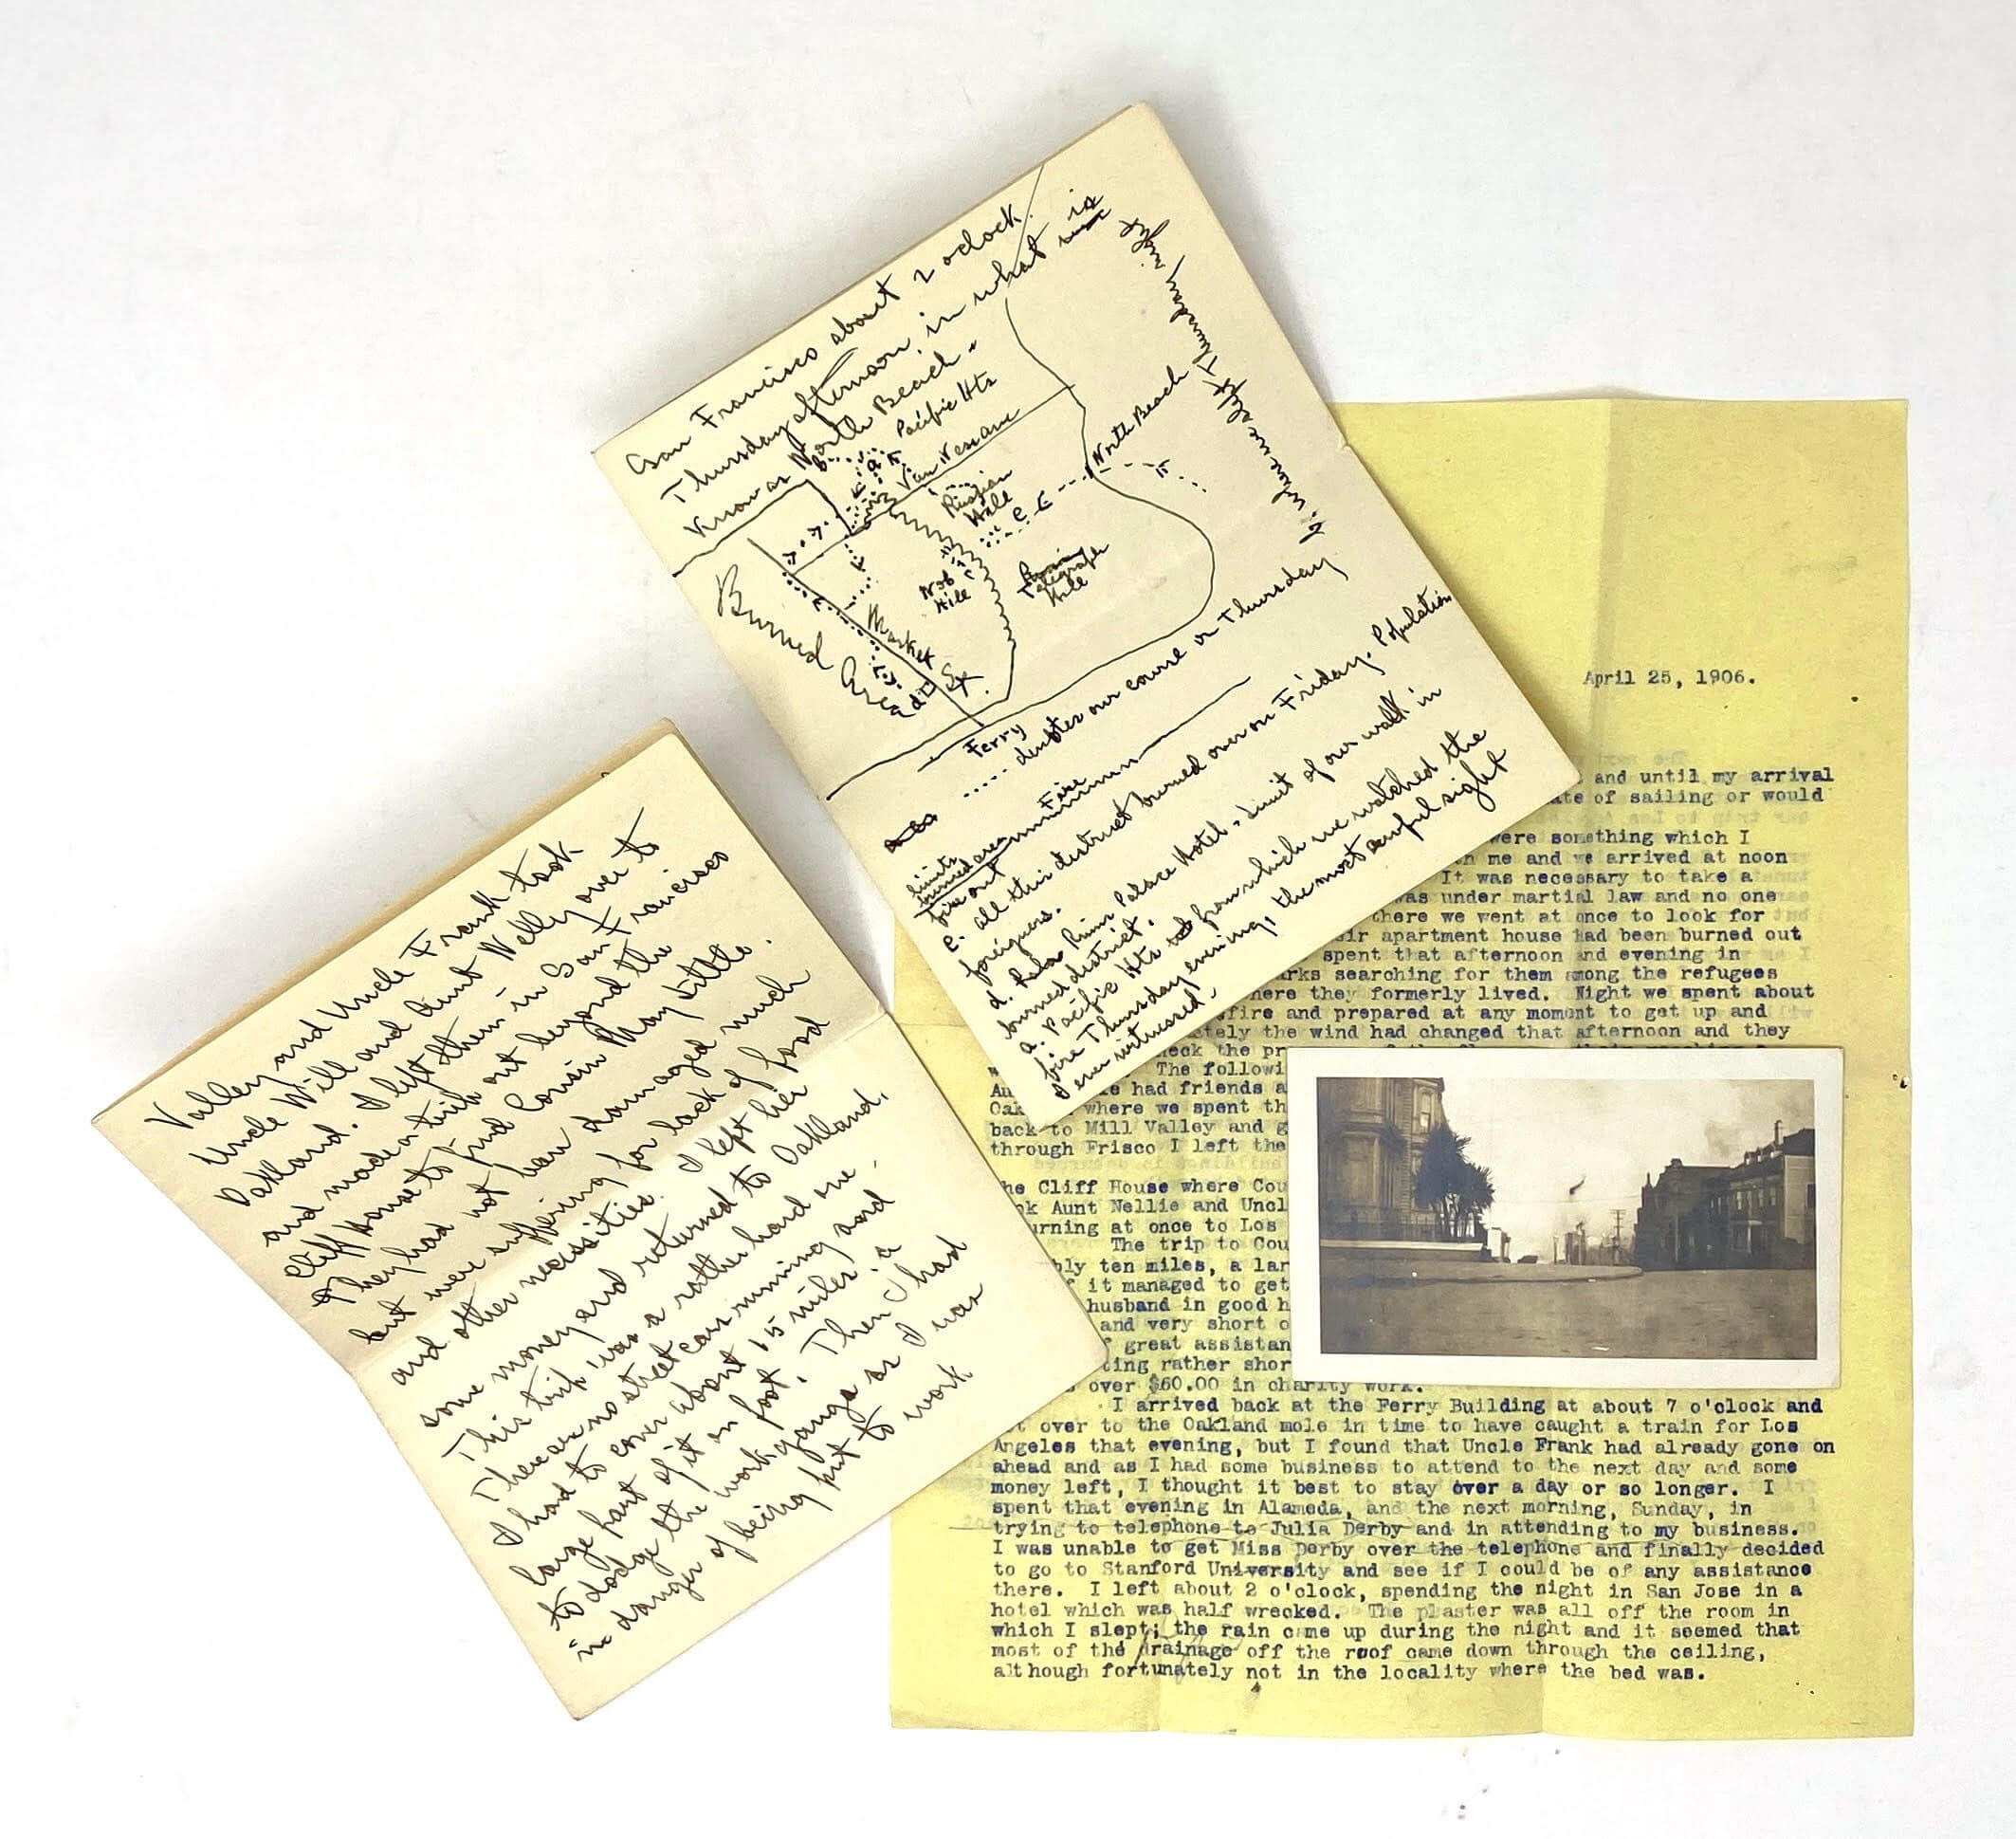 San Francisco about 2 oclock
Thursday afternoon, in what is
known as North Beach.
Pacific Hts
Van Ness ave
Russian
Hill
North Beach
Nob
Hill
Telegraph
Hill
Market St.
Burned Area
d
a
e
b
Ferry
..... denotes our course on Thursday
Fire
limits
burned area
fire out
e. all this district burned over on Friday. Population
foreigners.
d. Ruins Palace Hotel. Limit of our walk in
burned district.
a. Pacific Hts from which we watched the
fire Thursday evening, the most awful sight
I ever witnessed.
where we slept Thursday night
Valley and Uncle Frank took
Uncle Will and Aunt Nelly over to
Oakland. I left them in San Francisco
and made a trip out beyond the
Cliff House to find Cousin May Little.
They had not been damaged much
but were suffering for lack of food
and other necessities. I left her
some money and returned to Oakland.
This trip was a rather hard one.
There are no street cars running and
I had to cover about 15 miles, a
large part of it on foot. Then I had
to dodge the work gangs as I was
in danger of being put to work
April 25, 1906.
and until my arrival
ate of sailing or would
were something which I
th me and we arrived at noon
It was necessary to take a
was under martial law and no one
here we went at once to look for
eir apartment house had been burned out
spent that afternoon and evening in
rks searching for them among the refugees
here they formerly lived. Night we spent about
fire and prepared at any moment to get up and
tely the wind had changed that afternoon and they
heck the pr
The followi
had friends a
where we spent th
back to Mill Valley and g
through Frisco I left the
he Cliff House where Cou
ok Aunt Nellie and Uncl
urning at once to Los
The trip to Cou
bly ten miles, a lar
f it managed to get
husband in good h
and very short o
f great assistan
ting rather shor
over $60.00 in charity work.
I arrived back at the Ferry Building at about 7 o'clock and
t over to the Oakland mole in time to have caught a train for Los
Angeles that evening, but I found that Uncle Frank had already gone on
ahead and as I had some business to attend to the next day and some
money left, I thought it best to stay over a day or so longer. I
spent that evening in Alameda, and the next morning, Sunday, in
trying to telephone to Julia Derby and in attending to my business.
I was unable to get Miss Derby over the telephone and finally decided
to go to Stanford University and see if I could be of any assistance
there. I left about 2 o'clock, spending the night in San Jose in a
hotel which was half wrecked. The plaster was all off the room in
which I slept; the rain came up during the night and it seemed that
most of the drainage off the roof came down through the ceiling,
although fortunately not in the locality where the bed was.